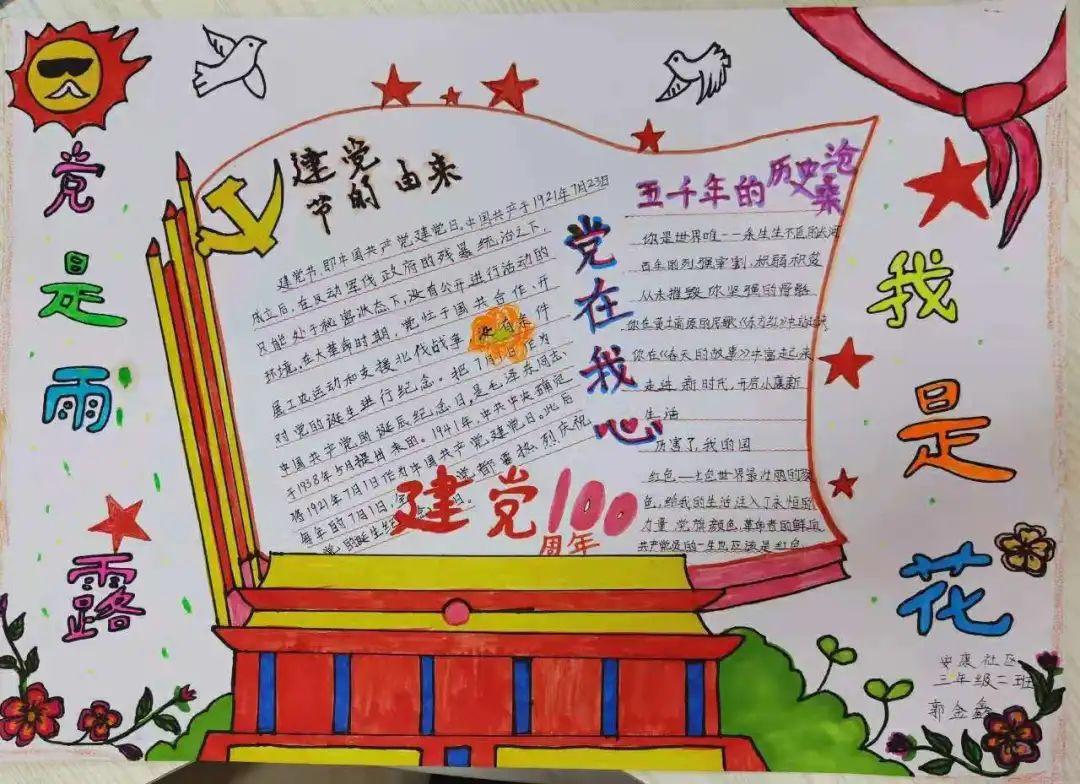 党是雨露
建党
节的由来
建党节,即中国共产党建党日。中国共产于1921年7月23日
成立后,在反动军伐政府的残暴统治之下,
只能处于秘密状态下,没有公开进行活动的
环境。在大革命时期,党忙于国共合作、开
展工农运动和支援北伐战争,没有条件
对党的诞生进行纪念。把7月1日作为
中国共产党的诞辰纪念日,是毛泽东同志
于1938年5月提出来的。1941年,中共中央确定
将1921年7月1日作为中国共产党建党日。此后
每年的7月1日,全党都要热烈庆祝
党的诞生纪
党在我心
建党100
周年
五千年的历史沧桑
你是世界唯一一条生生不
百年的列强宰割,积弱积贫
从未摧毁你坚强的骨骼
你在黄土高原的
你在《春天的故事》中富起已来
走进新时代,开启小康新
生活
厉害了我的国
红色——土色世界最壮丽的
色,给我的生活注入了永恒的
力量,党旗颜色,革命者的鲜血
共产党员的一生也应该是红色
我是花
安康社区
三年级二班
郭金鑫